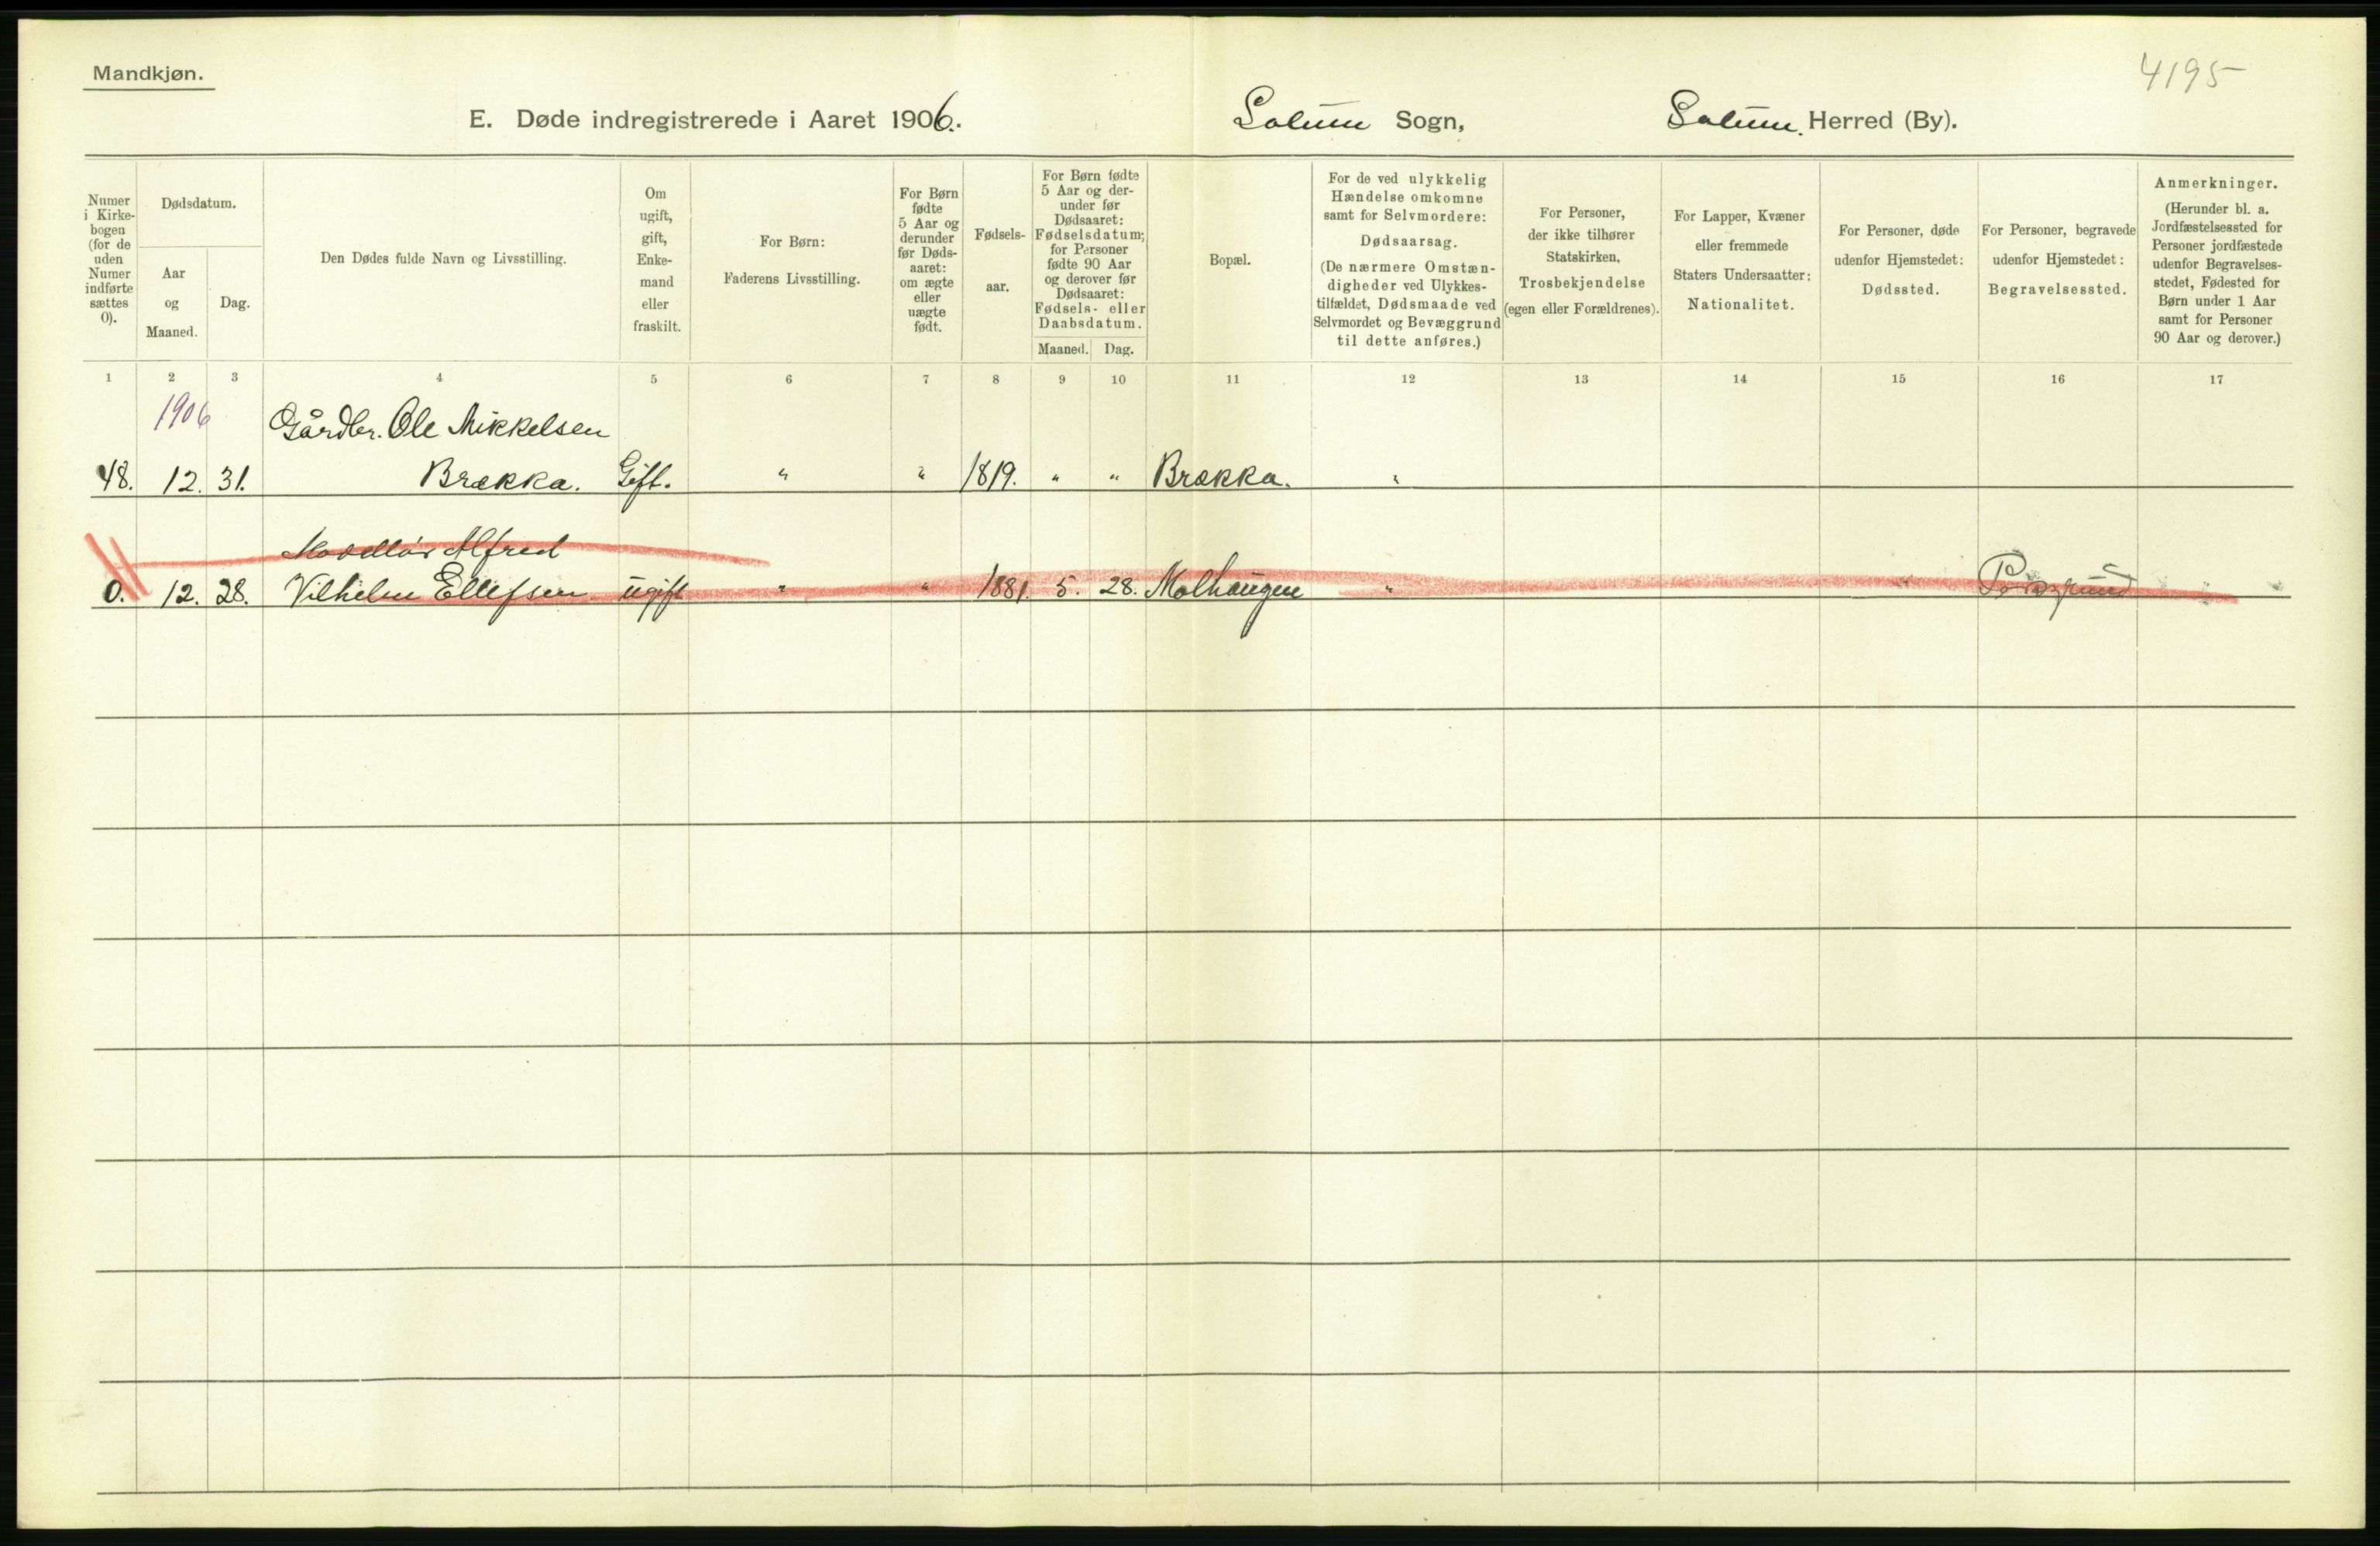 Mandkjøn.
4195
E. Døde indregistrerede i Aaret 1906. Solum Sogn, Solum. Herred (By).
Numer i Kirke-bogen (for de uden Numer indførte sættes 0).
Dødsdatum.
Aar og Maaned.
Dag.
Den Dødes fulde Navn og Livsstilling.
Om ugift, gift, Enke-mand eller fraskilt.
For Børn:
Faderens Livsstilling.
For Børn fødte 5 Aar og derunder før Døds-aaret: om ægte eller uægte født.
Fødsels-aar.
For Børn fødte 5 Aar og der-under før Dødsaaret: Fødselsdatum; for Personer fødte 90 Aar og derover før Dødsaaret: Fødsels- eller Daabsdatum.
Maaned. Dag.
Bopæl.
For de ved ulykkelig Hændelse omkomne samt for Selvmordere:
Dødsaarsag.
(De nærmere Omstæn-digheder ved Ulykkes-tilfældet, Dødsmaade ved Selvmordet og Bevæggrund til dette anføres.)
For Personer, der ikke tilhører Statskirken,
Trosbekjendelse
(egen eller Forældrenes).
For Lapper, Kvæner eller fremmede Staters Undersaatter:
Nationalitet.
For Personer, døde udenfor Hjemstedet:
Dødssted.
For Personer, begravede udenfor Hjemstedet:
Begravelsessted.
Anmerkninger.
(Herunder bl. a. Jordfæstelsessted for Personer jordfæstede udenfor Begravelses-stedet, Fødested for Børn under 1 Aar samt for Personer 90 Aar og derover.)
1 2 3 4 5 6 7 8 9 10 11 12 13 14 15 16 17
1906
Gårdbr. Ole Mikkelsen
48. 12. 31. Brækka. Gift. " " 1819. " " Brækka. "
Alfred
0. 12. 28. Vilhelm Ellefsen ugift " " 1881. 5. 28. Molhaugen " " Porsgrund "